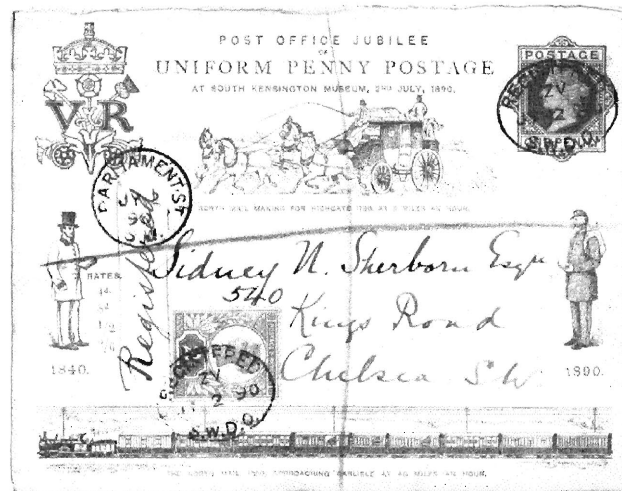 POST OFFICE JUBILEE
OF
UNIFORM PENNY POSTAGE
AT SOUTH KENSINGTON MUSEUM, 2ND JULY, 1890.
V R
POSTAGE
REGISTERED
ZV
S.W.D.O.
PARLIAMENT·ST
JY
90
NORTH MAIL MAKING FOR HIGHGATE 1790 AT 8 MILES AN HOUR.
Registered
Sidney N. Sherborn Esqr
RATES.
540
Kings Road
Chelsea S W
REGISTERED
ZV
2 90
S.W.D.O.
1840.
1890.
THE NORTH MAIL 1890, APPROACHING CARLISLE AT 48 MILES AN HOUR.